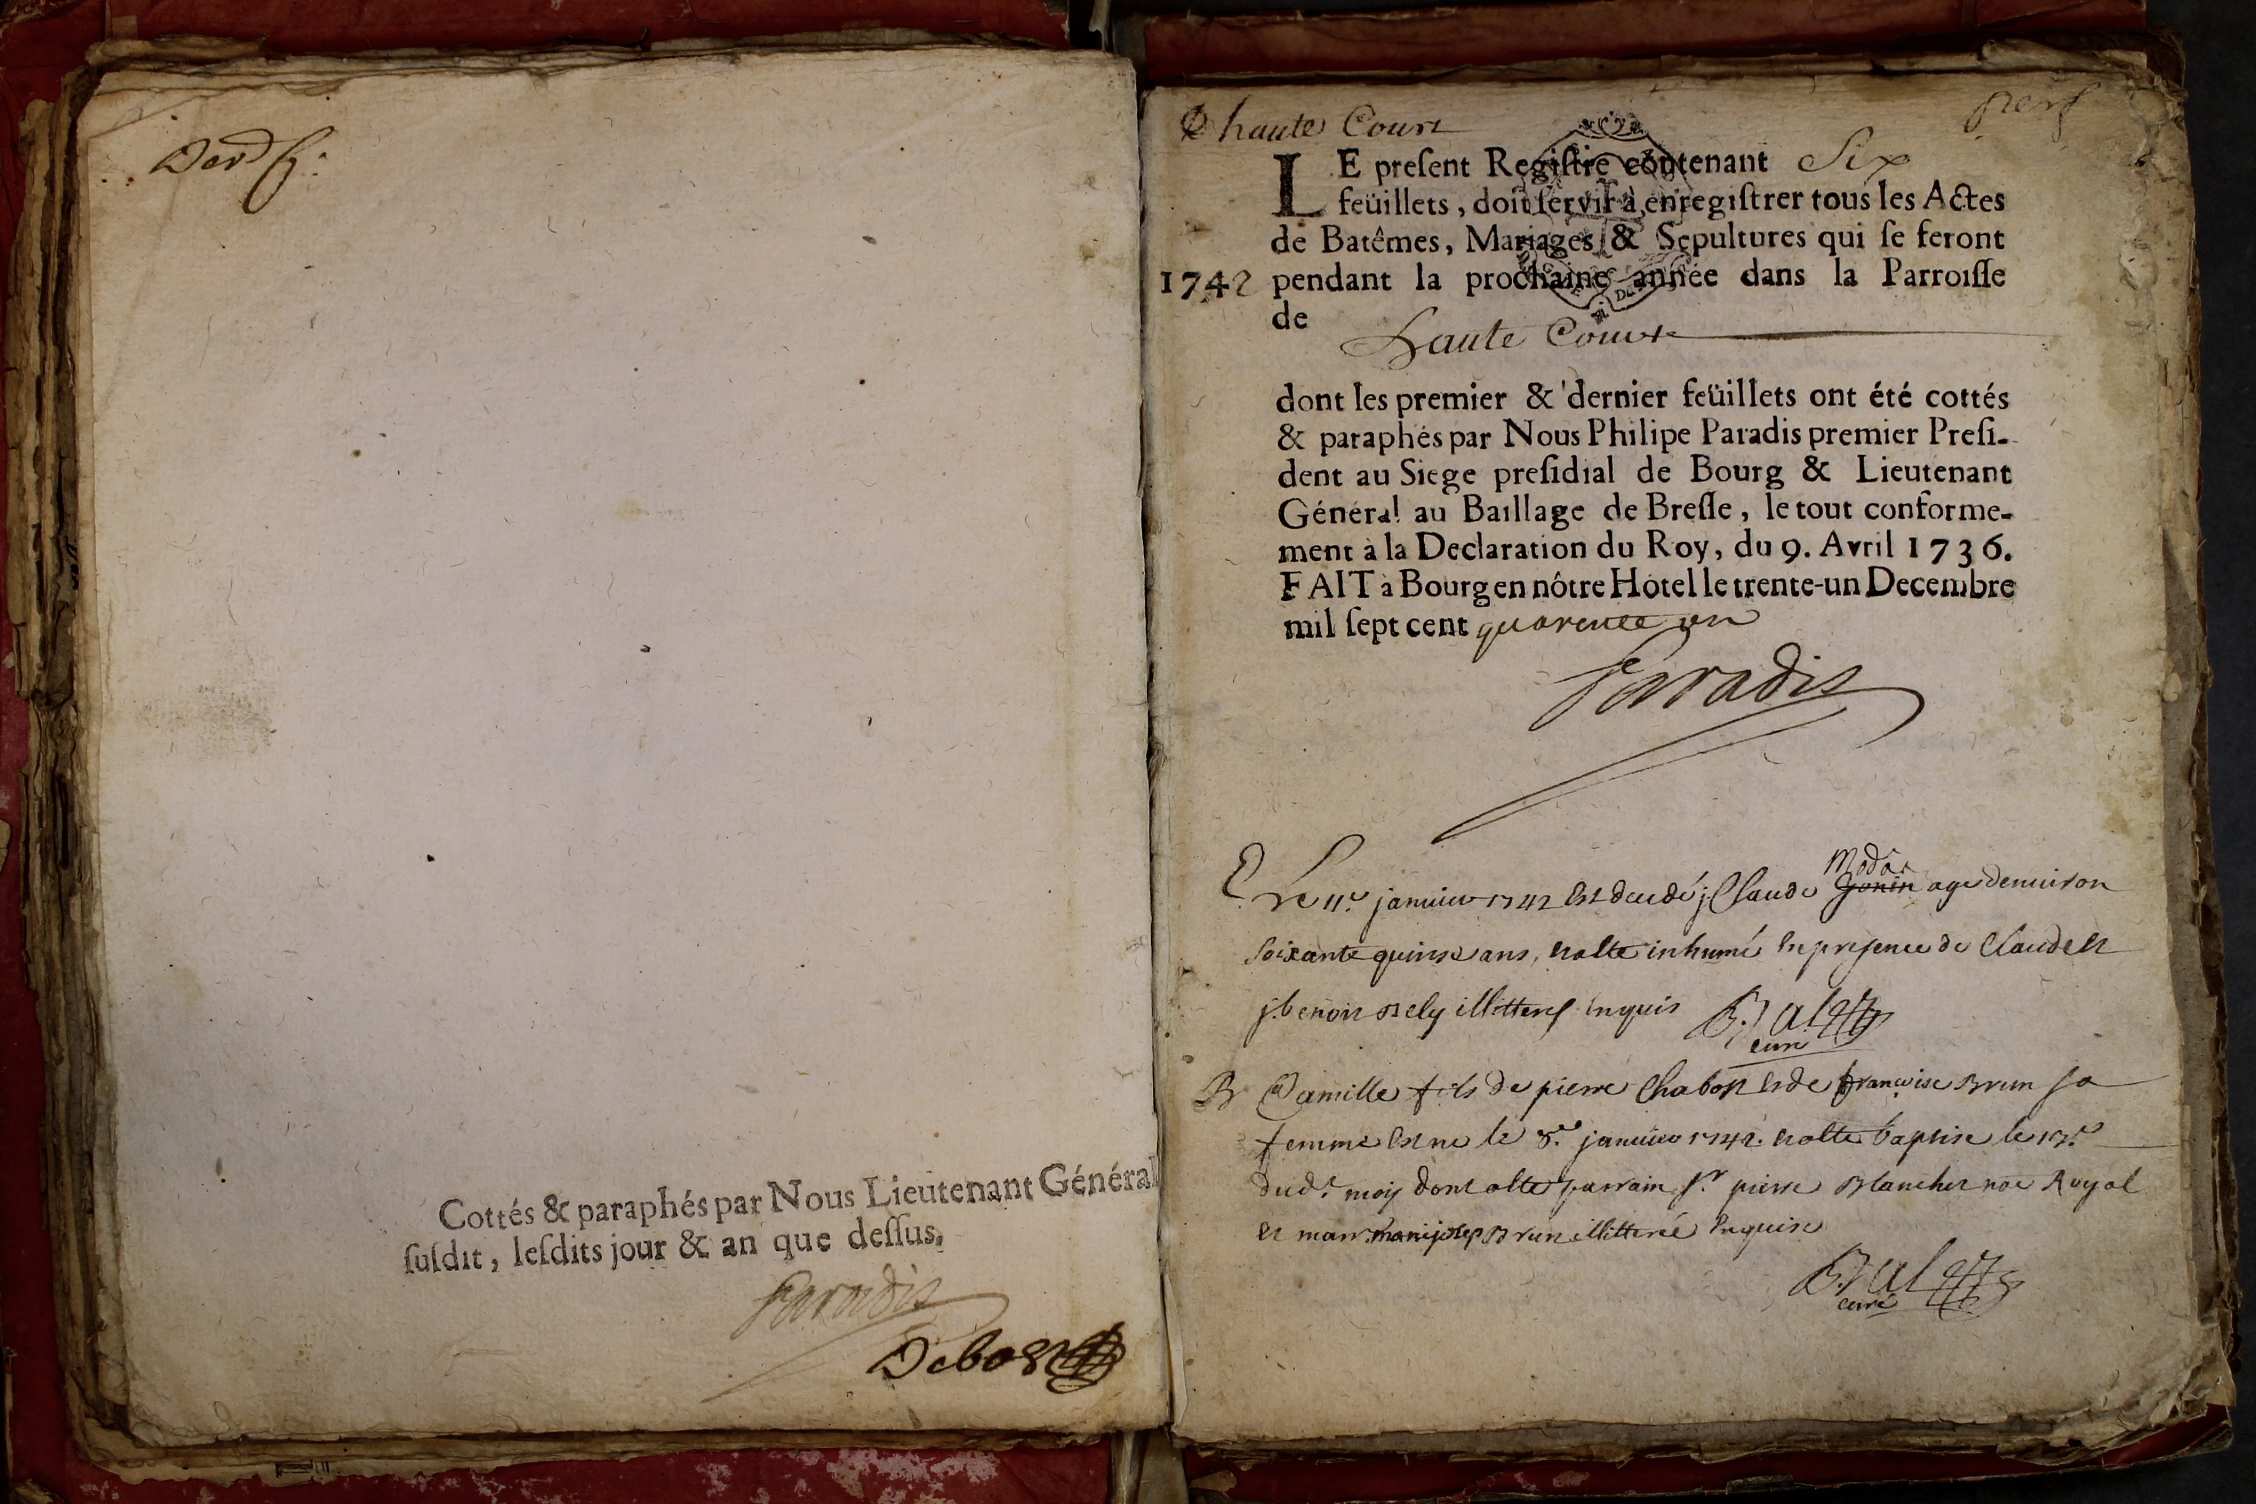 Cottés & paraphés par Nous Lieutenant Général
susdit, lesdits jour & an que dessus.
Paradis
Debost
haute Court
LE present Registre contenant Six
feüillets, doit servir à enregistrer tous les Actes
de Batêmes, Mariages & Sepultures qui se feront
1742 pendant la prochaine année dans la Parroisse
de
haute Court
dont les premier & dernier feüillets ont été cottés
& paraphés par Nous Philipe Paradis premier Presi-
dent au Siege presidial de Bourg & Lieutenant
Général au Baillage de Bresse, le tout conforme-
ment à la Declaration du Roy, du 9. Avril 1736.
FAIT à Bourg en nôtre Hôtel le trente-un Decembre
mil sept cent quarente un
Paradis
Le 11e janvier 1742 est decedé j. Claude age denviron
soixante quinse ans, et a ete inhumé en presence de Claude et
j. benoit Rely illitteres enquis
curé
B Camille fils de pierre Chabot et de françoise Brun sa
femme est ne le 8e janvier 1742. et a ete baptise le
dud.t mois dont a ete parrain sr pierre Blanchet noe Royal
et marr. Brun illitterée enquise
curé